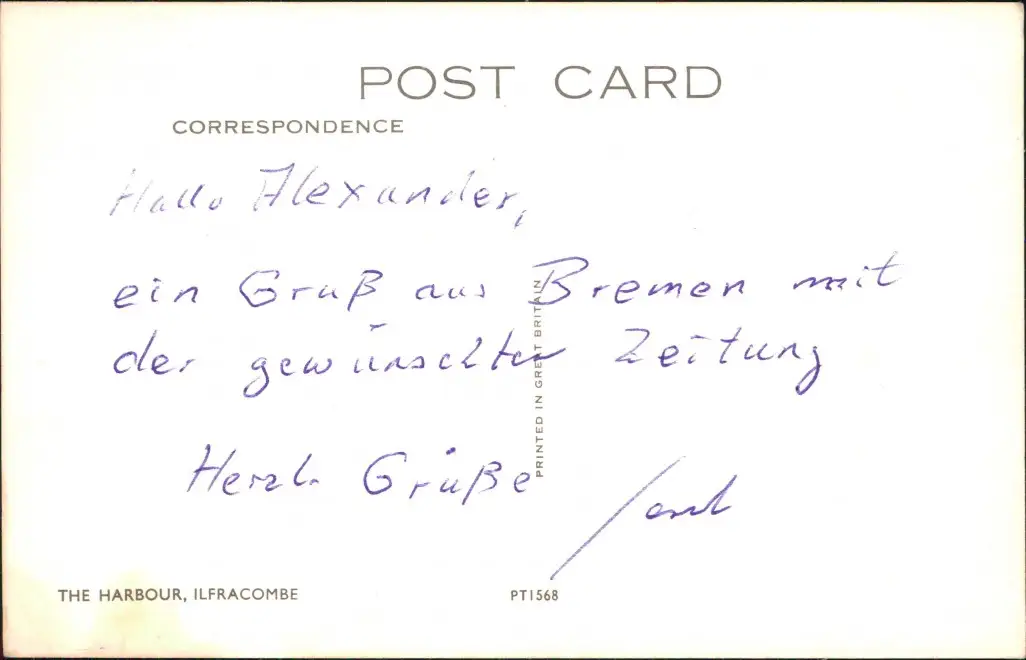 POST CARD
CORRESPONDENCE
Hallo Alexander,
ein Gruß aus Bremen mit
der gewünschten Zeitung
Herzl. Grüße
PRINTED IN GREAT BRITAIN
THE HARBOUR, ILFRACOMBE
PT1568